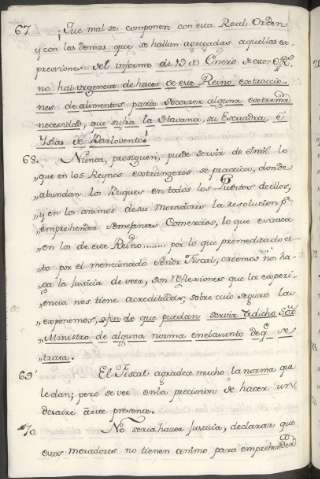 67. ¡Que mal se componen con esta Real Orden
y con las demas, que se hallan agregadas aquellas ex-
presiones del informe de 12 de Enero
no hai urgencia de hacer de este Reino extraccio-
nes de alimentos para socorrer alguna extrema
necesidad, que sufra la Havana, su Esquadra, é
Yslas de Barlovento!
68. Nunca, prosiguen, puede servir de simil lo
que en los Reynos extrangeros se practica, donde
"abundan los Buques en todos los Puertos de ellos,
"y en los animos de sus Moradores la resolucion pa.
"emprehender semejantes Comercios, lo que escasea
"en los de este Reino......... por lo que premeditado es-
"to por el mencionado Señor Fiscal, creemos no ha-
"ga la Justicia de ver, son reflexiones que la experi-
"encia nos tiene acreditadas, sobre cuio seguro las
"exponemos, sin que puedan servir á dicho Sor.
"Ministro de alguna norma en el asunto de q. se
trata.
69. El Fiscal agradece mucho la norma que
le dan; pero se ve en la precision de hacer un
deraire á este presente.
70. No seria hacer Justicia, declarar que
esos moradores no tienen animo para emprehender